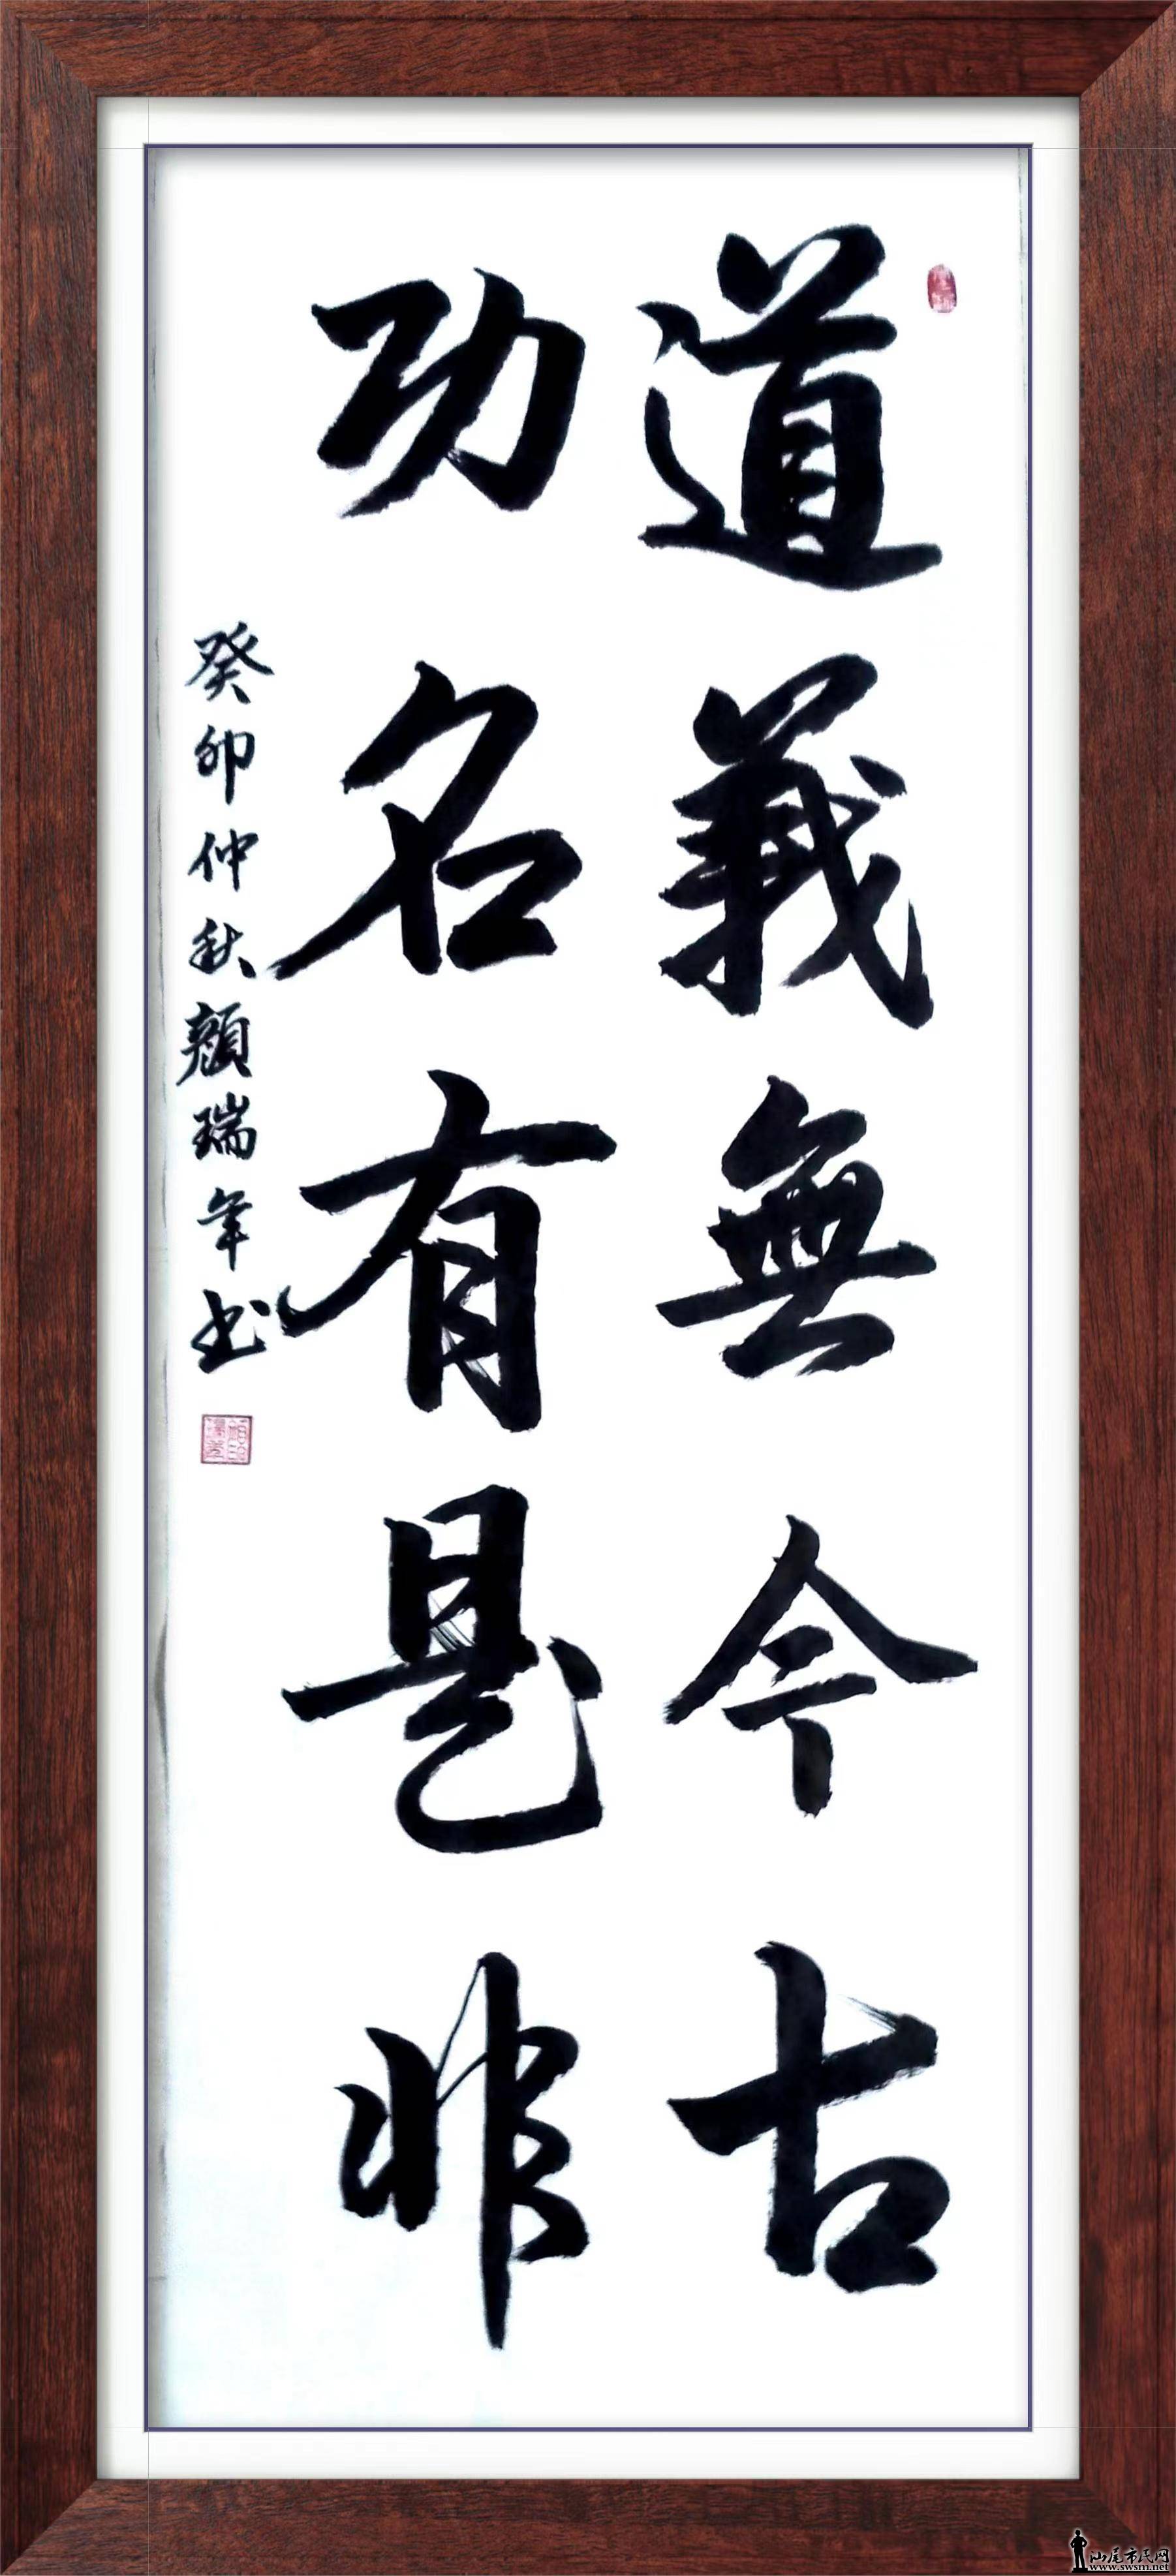 道義無今古
功名有是非
癸卯仲秋顏瑞年书
汕尾市民网
www.swsm.net